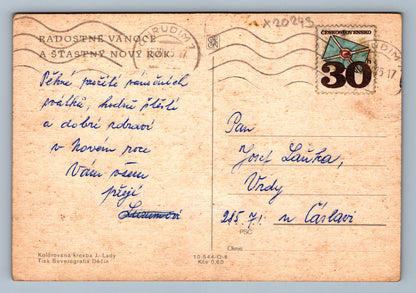 x20249
RADOSTNÉ VÁNOCE
A ŠŤASTNÝ NOVÝ ROK
CHRUDIM 1
ČESKOSLOVENSKO
30
Pěkné prožití vánočních
svátků, hodně štěstí
a dobré zdraví
v Novém roce
Vám všem
přejí
Pan
Josef Laňka,
Vrdy
215. 71. u Čáslavi
PSČ
Okres
Kolorovaná kresba J. Lady
Tisk Severografia Děčín
10-544-O-6
Kčs 0,60